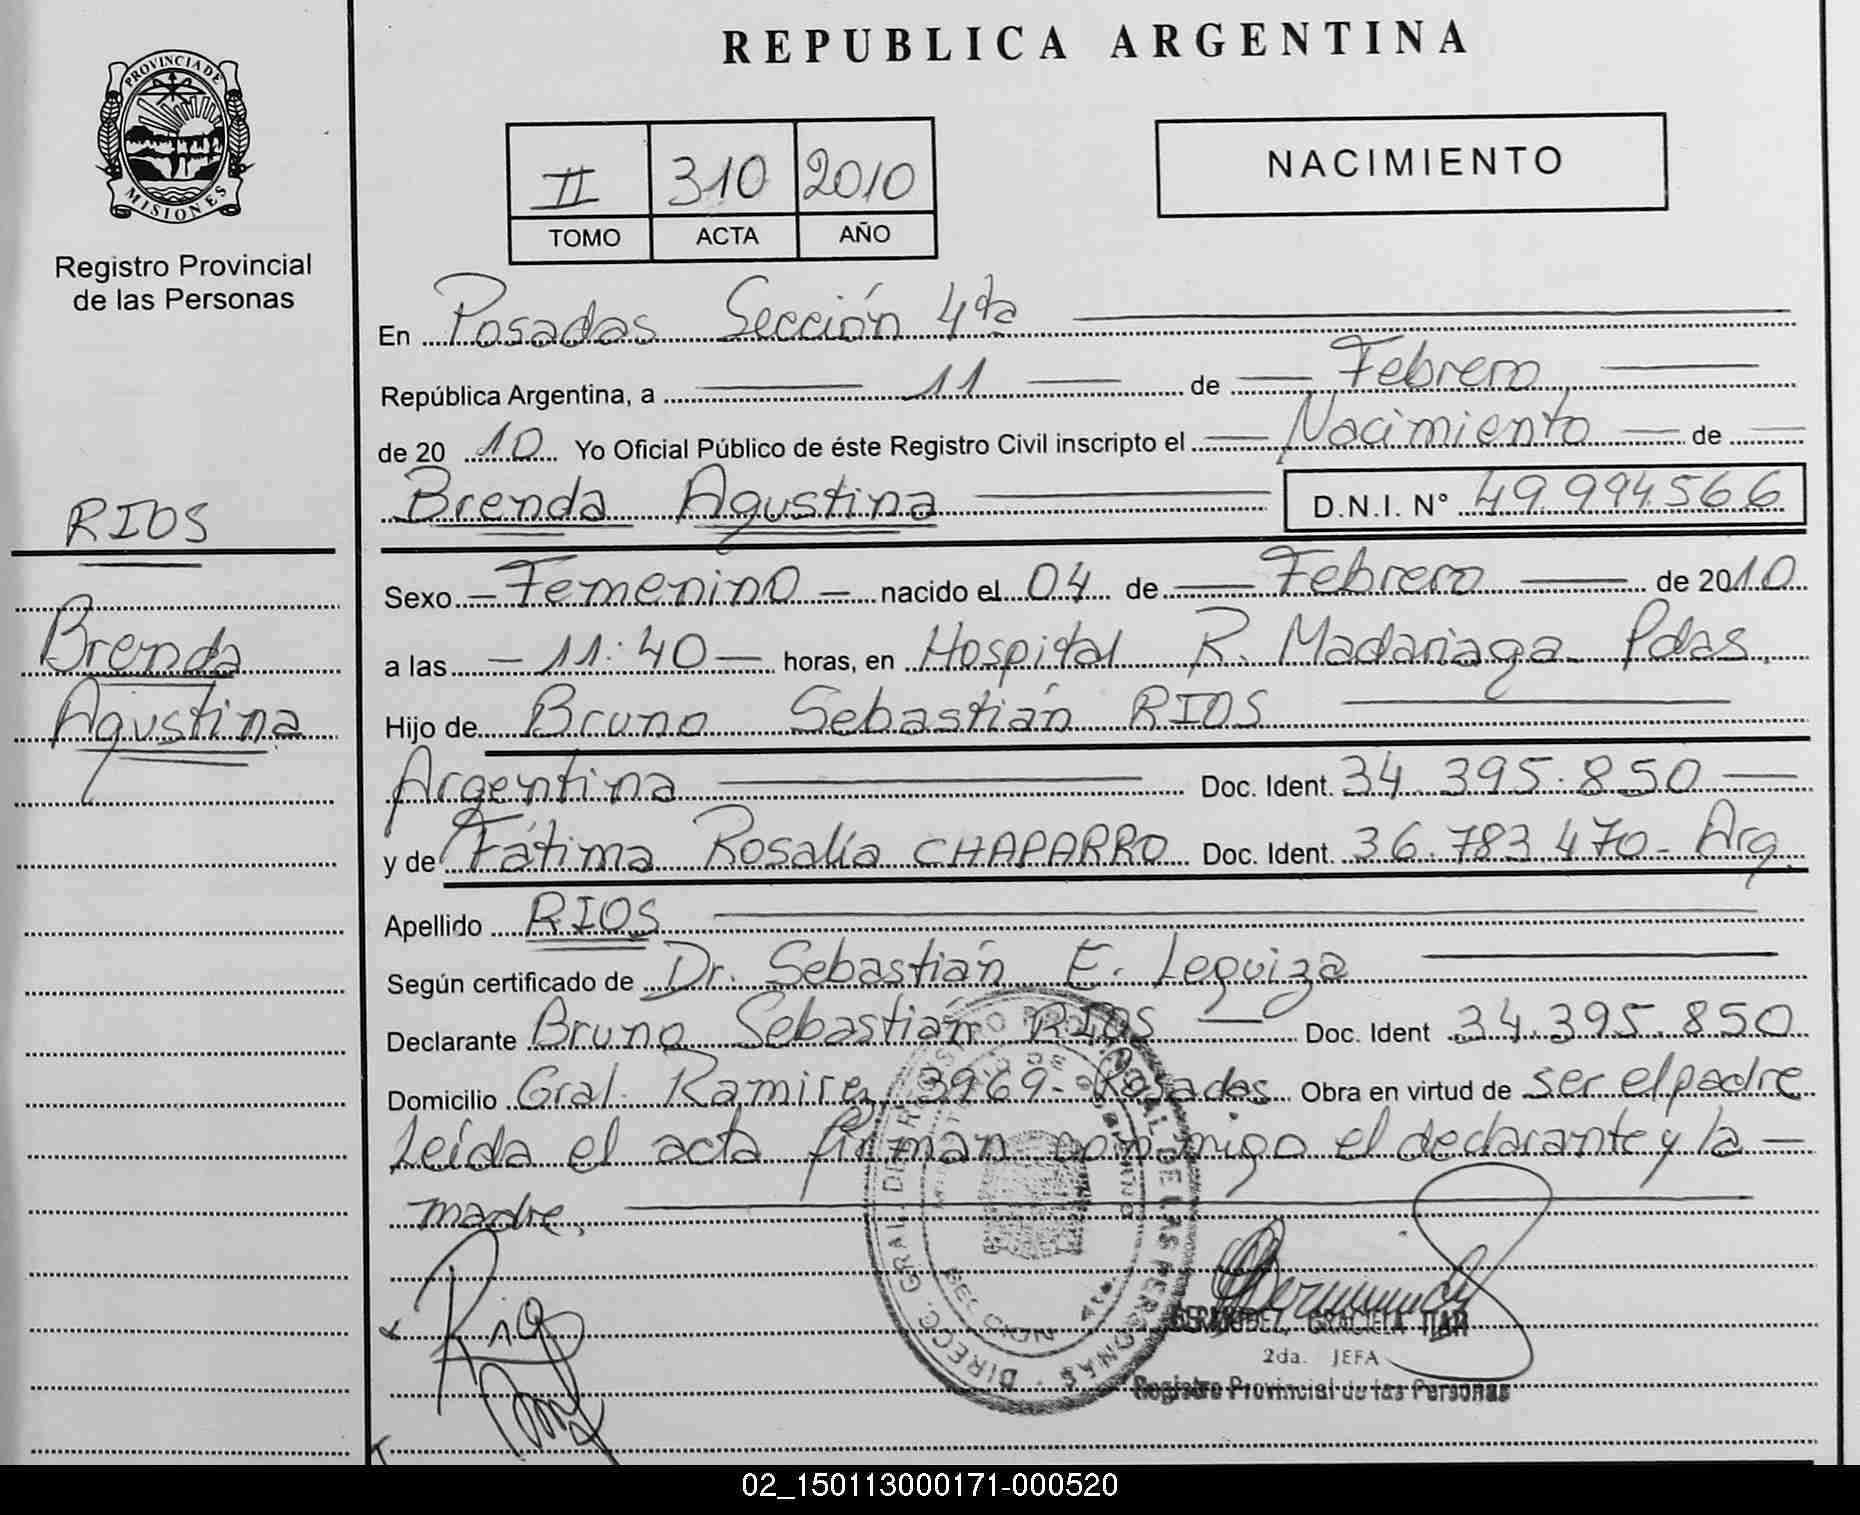 PROVINCIA DE
MISIONES
Registro Provincial
de las Personas
RIOS
Brenda
Agustina
REPUBLICA ARGENTINA
II 310 2010
TOMO ACTA AÑO
NACIMIENTO
En Posadas Sección 4ta
República Argentina, a 11 de Febrero
de 2010 Yo Oficial Público de éste Registro Civil inscripto el Nacimiento de
Brenda Agustina D.N.I. N° 49.994.566
Sexo Femenino nacido el 04 de Febrero de 2010
a las 11:40 horas, en Hospital R. Madariaga Pdas.
Hijo de Bruno Sebastián RIOS
Argentina Doc. Ident. 34.395.850
y de Fátima Rosalía CHAPARRO Doc. Ident. 36.783.470- Arg.
Apellido RIOS
Según certificado de Dr. Sebastián E. Leguiza
Declarante Bruno Sebastián RIOS Doc. Ident 34.395.850
Domicilio Gral. Ramirez 3969- Posadas Obra en virtud de ser el padre
Leída el acta firman conmigo el declarante y la
madre.
Rios
DIRECC. GRAL. DE REGISTRO PROVINCIAL DE LAS PERSONAS
SECCION 4ta.
BERMUDEZ, GRACIELA ITATI
2da. JEFA
Registro Provincial de las Personas
02_150113000171-000520